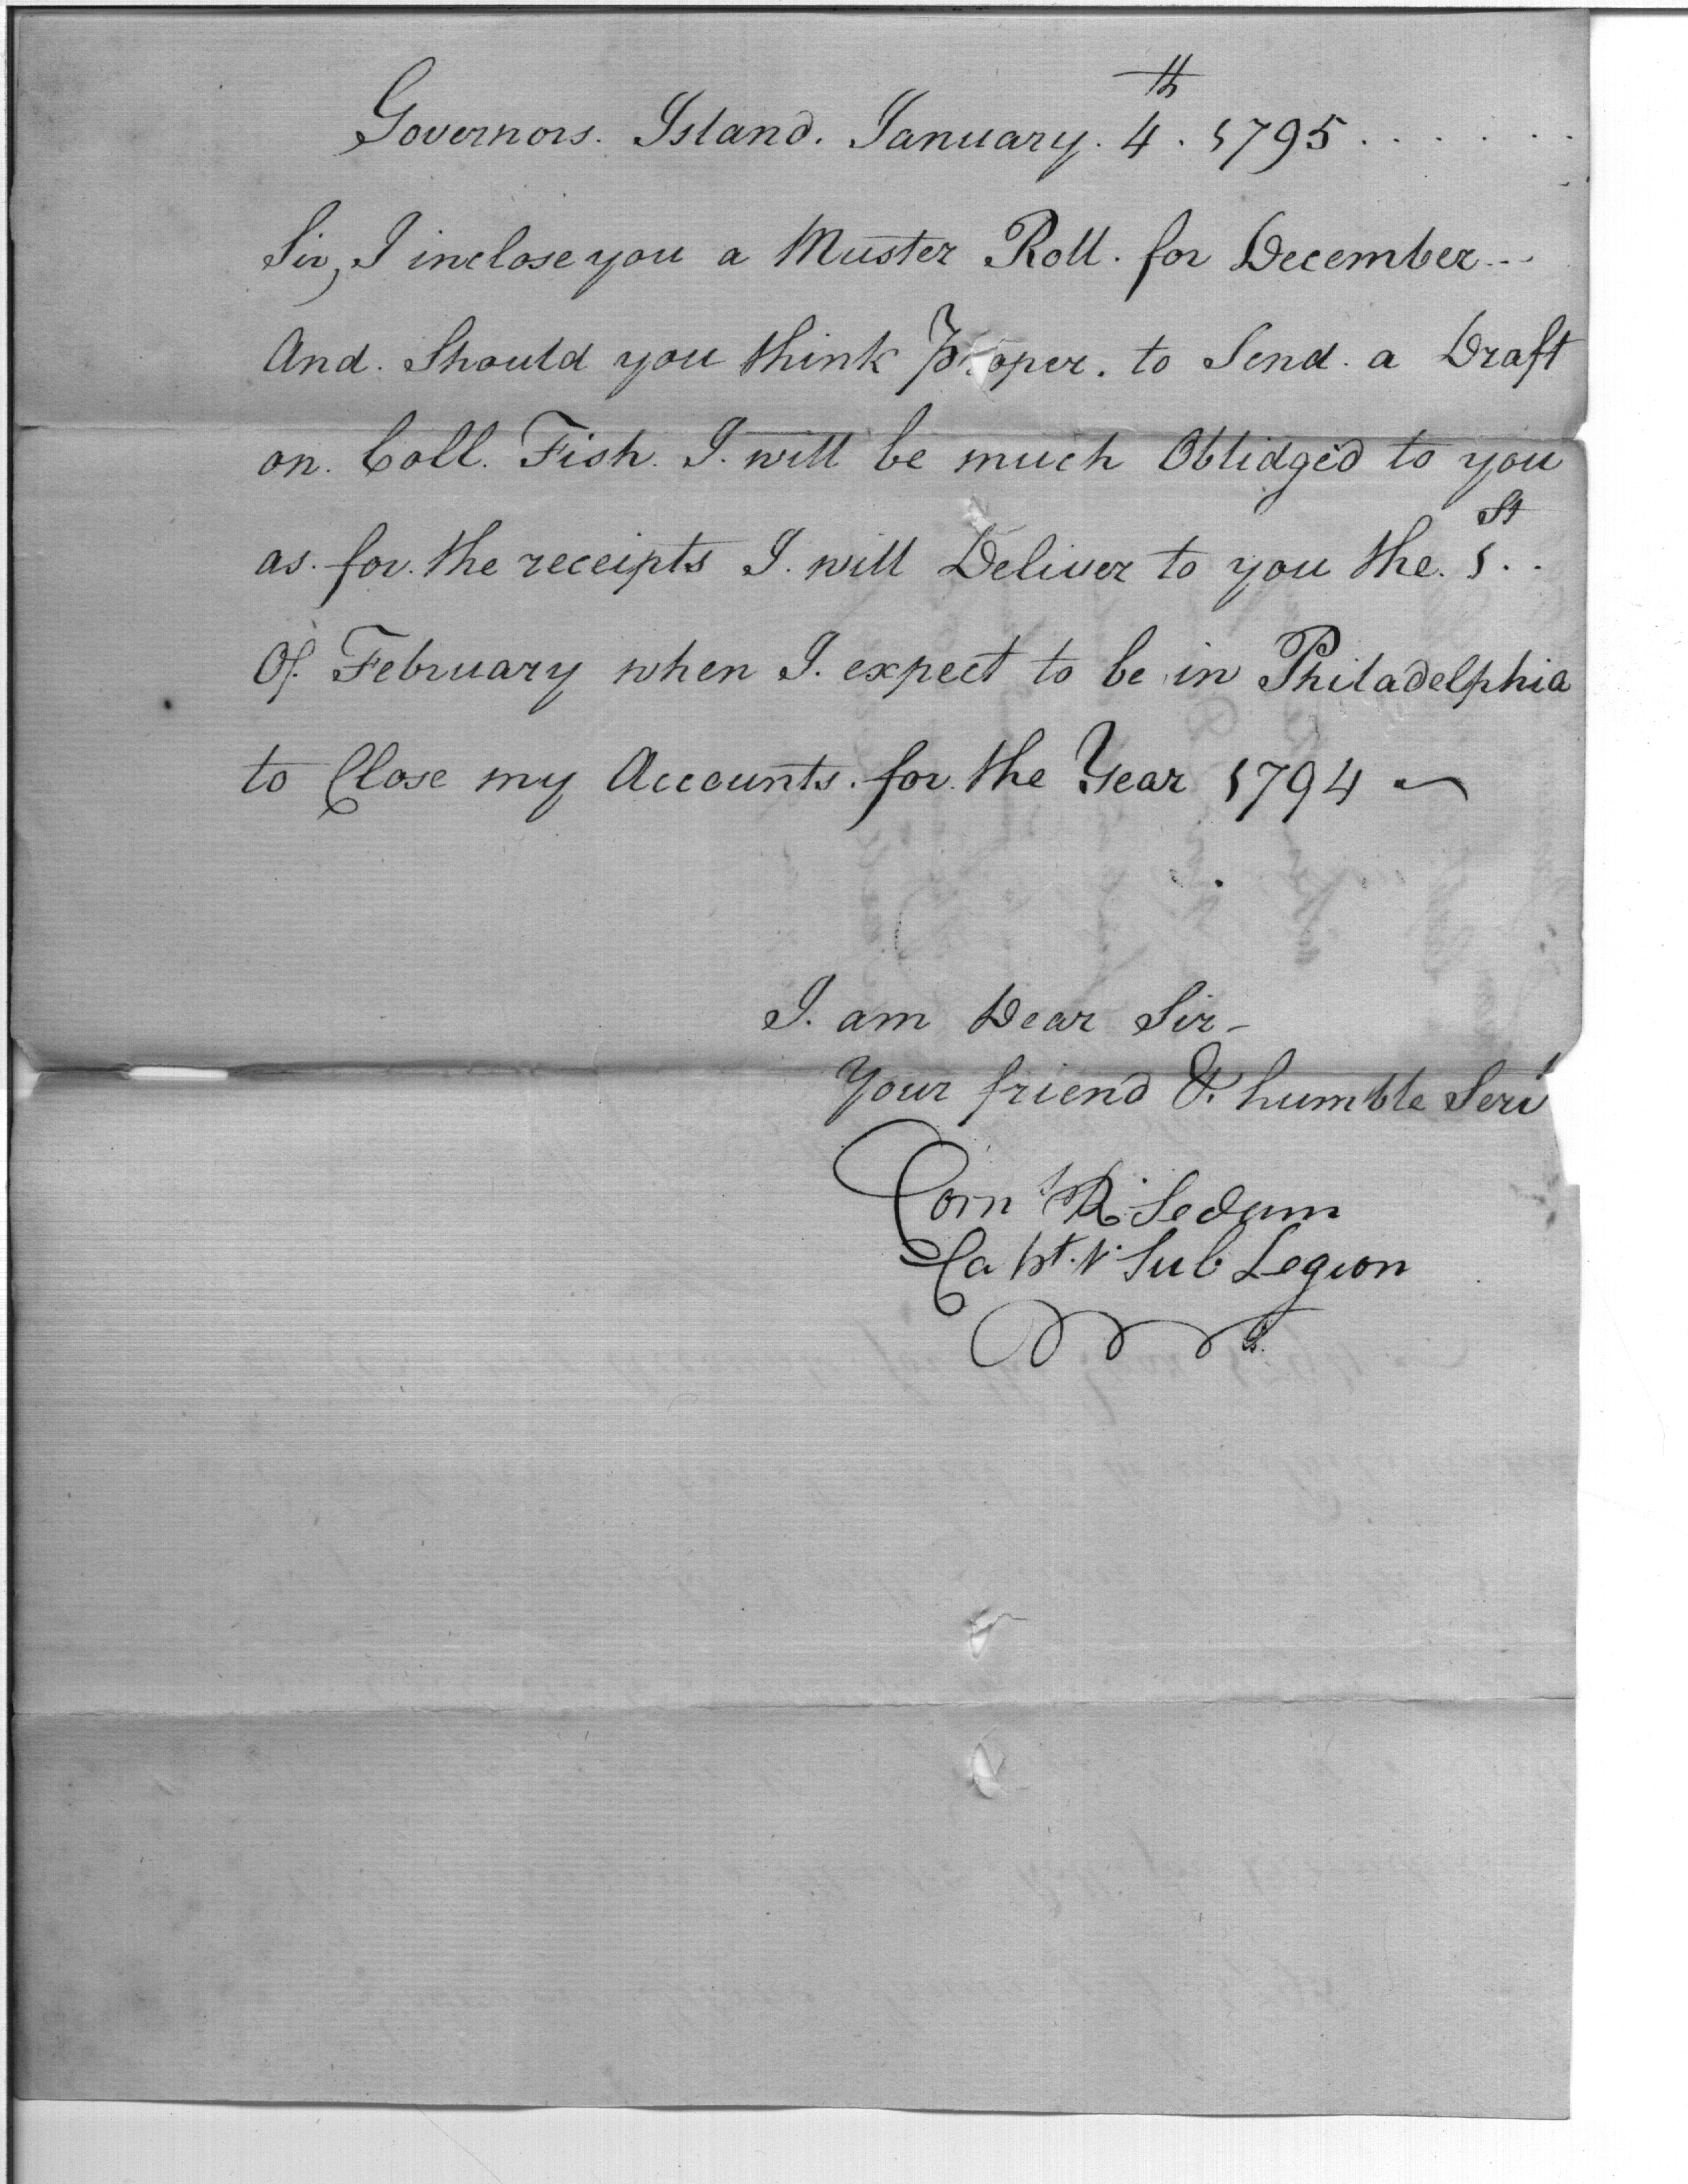 Governors. Island. January. 4th. 1795.......
Sir, I inclose you a Muster Roll. for December...
And. Should you think Proper. to Send. a Draft
on. Coll. Fish. I. will be much Oblidged to you
as. for. the receipts I. will Deliver to you the. 1st..
Of. February when I. expect to be in Philadelphia
to Close my Accounts. for. the Year 1794
I. am Dear Sir-
Your friend &. humble Serv
Corns R. Sedam
Capt. Sub Legion